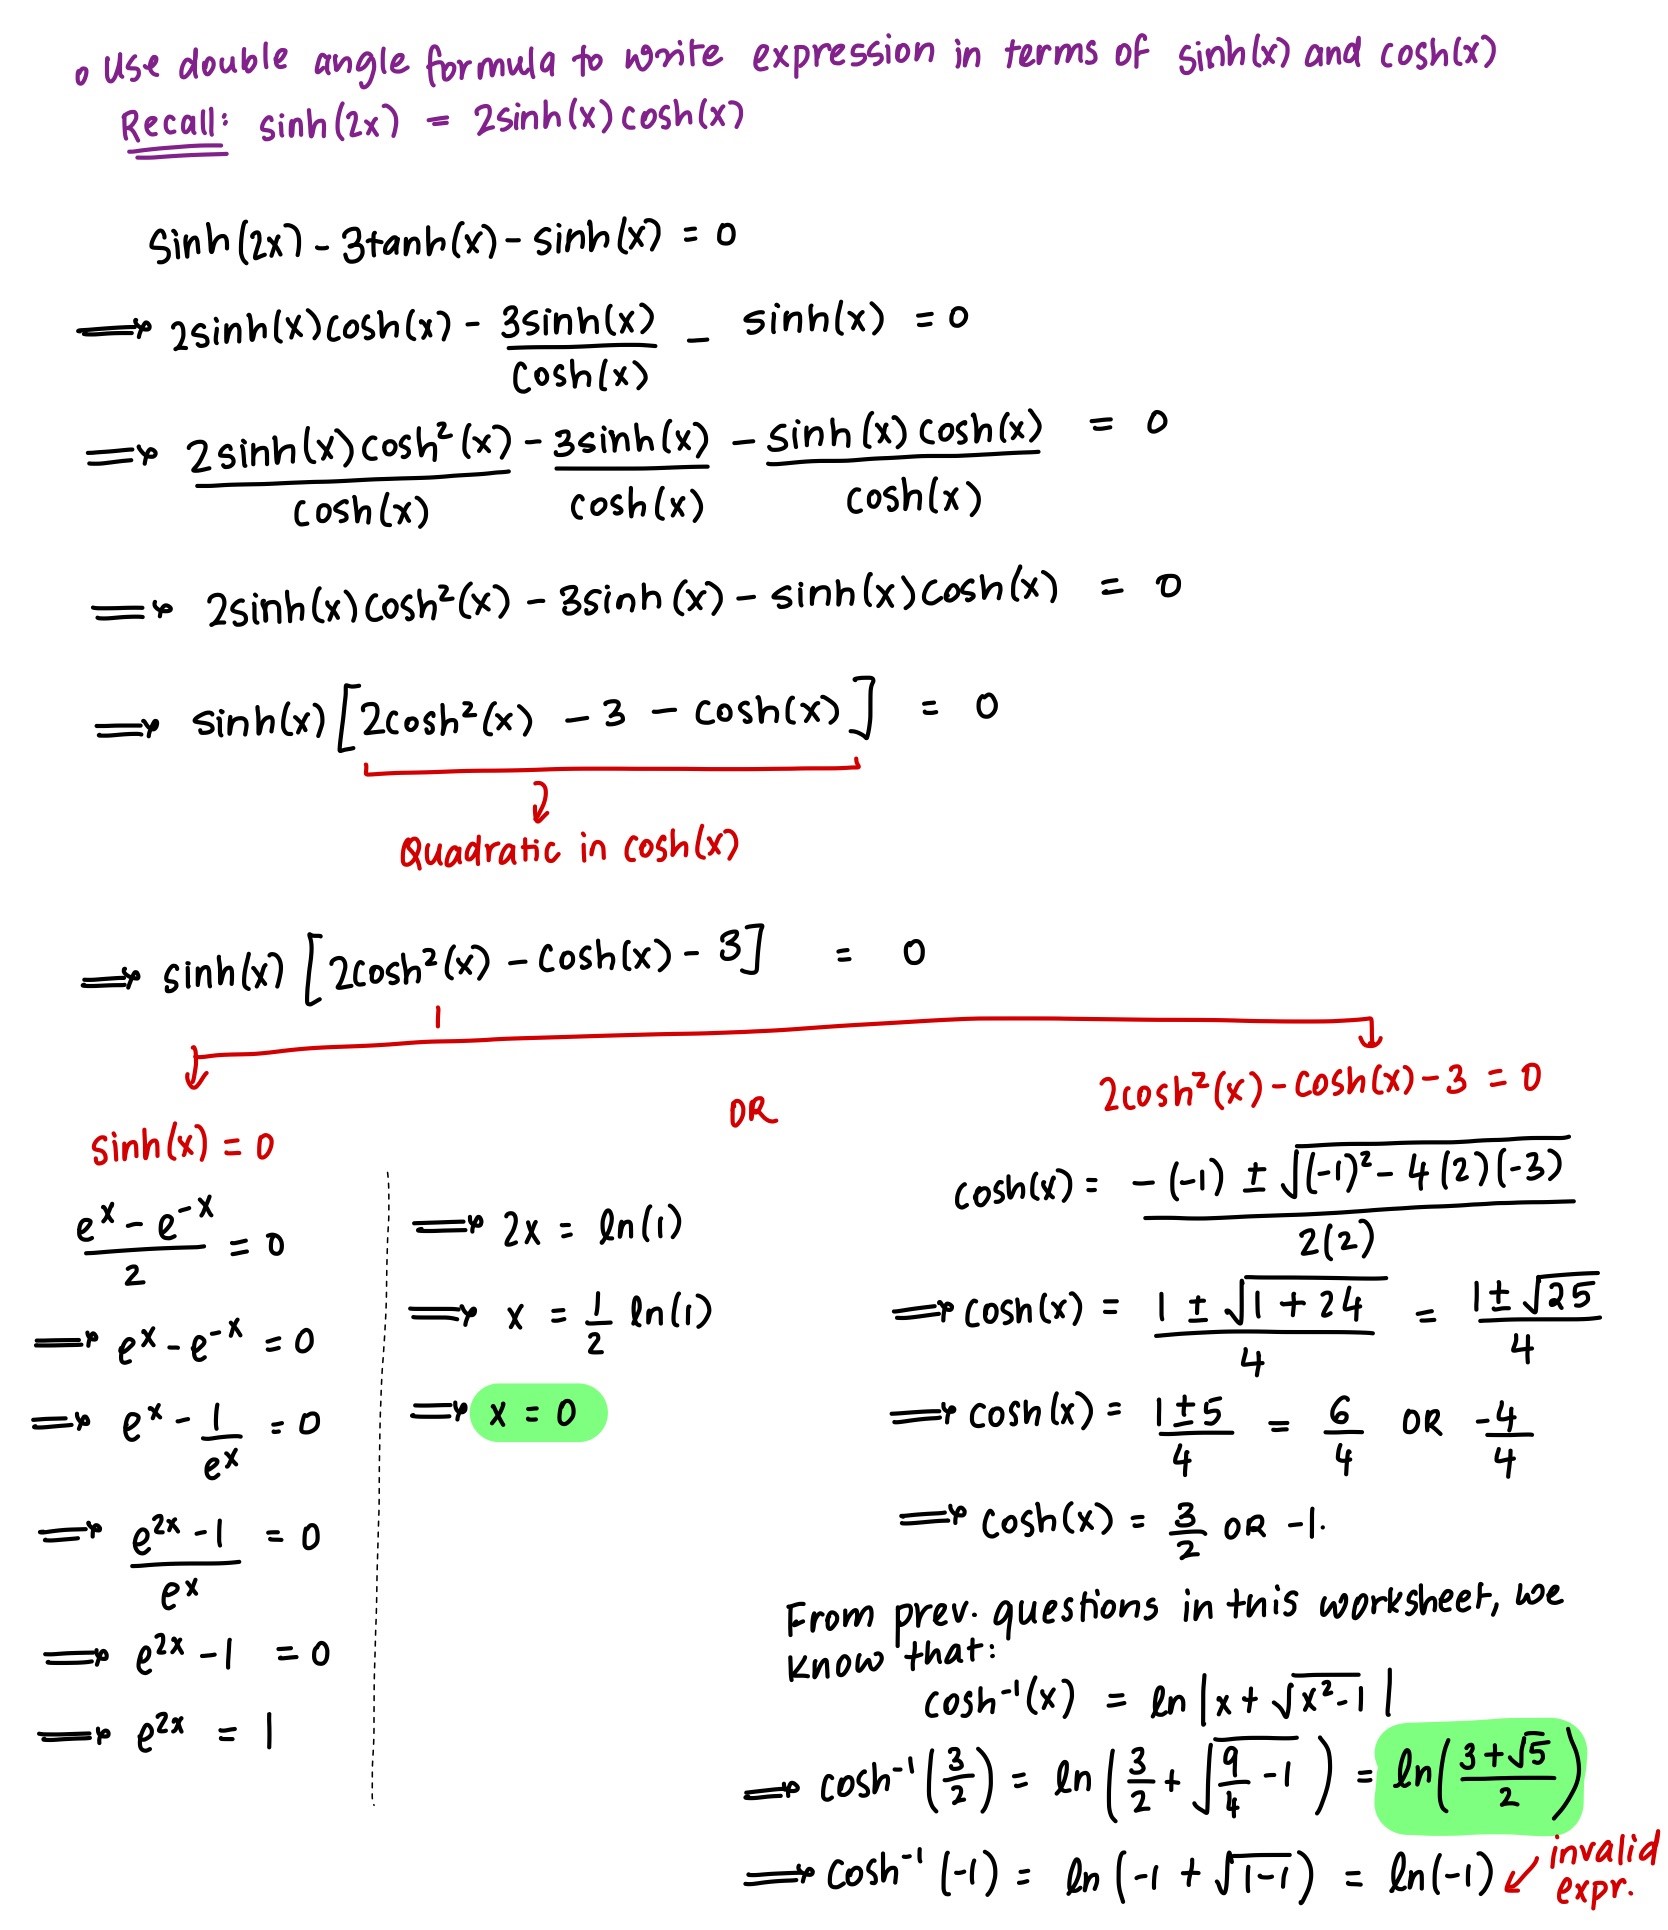 o Use double angle formula to write expression in terms of sinh(x) and cosh(x)
Recall: sinh(2x) = 2sinh(x)cosh(x)
Sinh(2x) - 3tanh(x) - sinh(x) = 0
⟹ 2sinh(x)cosh(x) - 3sinh(x)/cosh(x) - sinh(x) = 0
⟹ 2sinh(x)cosh²(x)/cosh(x) - 3sinh(x)/cosh(x) - sinh(x)cosh(x)/cosh(x) = 0
⟹ 2sinh(x)cosh²(x) - 3sinh(x) - sinh(x)cosh(x) = 0
⟹ sinh(x)[2cosh²(x) - 3 - cosh(x)] = 0
Quadratic in cosh(x)
⟹ sinh(x)[2cosh²(x) - cosh(x) - 3] = 0
sinh(x) = 0
(e^x - e^-x)/2 = 0
⟹ e^x - e^-x = 0
⟹ e^x - 1/e^x = 0
⟹ (e^2x - 1)/e^x = 0
⟹ e^2x - 1 = 0
⟹ e^2x = 1
⟹ 2x = ln(1)
⟹ x = 1/2 ln(1)
⟹ x = 0
OR
2cosh²(x) - cosh(x) - 3 = 0
cosh(x) = (-(-1) ± √((-1)² - 4(2)(-3)))/2(2)
⟹ cosh(x) = (1 ± √(1 + 24))/4 = (1 ± √25)/4
⟹ cosh(x) = (1 ± 5)/4 = 6/4 OR -4/4
⟹ cosh(x) = 3/2 OR -1.
From prev. questions in this worksheet, we
know that:
cosh⁻¹(x) = ln|x + √(x²-1)|
⟹ cosh⁻¹(3/2) = ln(3/2 + √(9/4 - 1)) = ln((3+√5)/2)
⟹ cosh⁻¹(-1) = ln(-1 + √(1-1)) = ln(-1)
invalid
expr.